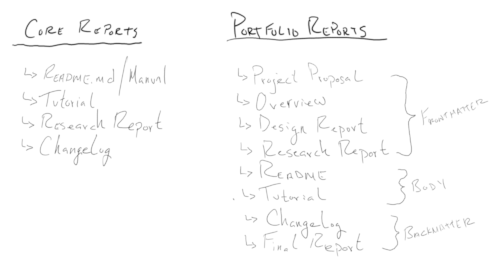 CORE REPORTS
↳ README.md/Manual
↳ Tutorial
↳ Research Report
↳ ChangeLog
PORTFOLIO REPORTS
↳ Project Proposal
↳ Overview
↳ Design Report
↳ Research Report
FRONTMATTER
↳ README
↳ Tutorial
BODY
↳ ChangeLog
↳ Final Report
BACKMATTER